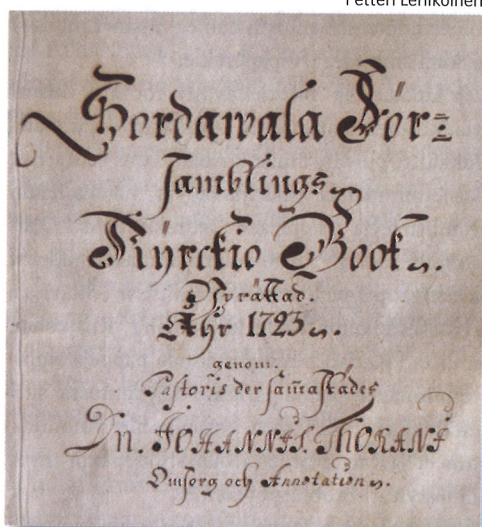 Petteri Lehikoinen
Sordawala För=
samblings
Kyrckio Book.
Uprättad.
Åhr 1723.
genom.
Pastoris der sam̄astädes
Dn. JOHANNIS THORANI
Omsorg och Annotation.